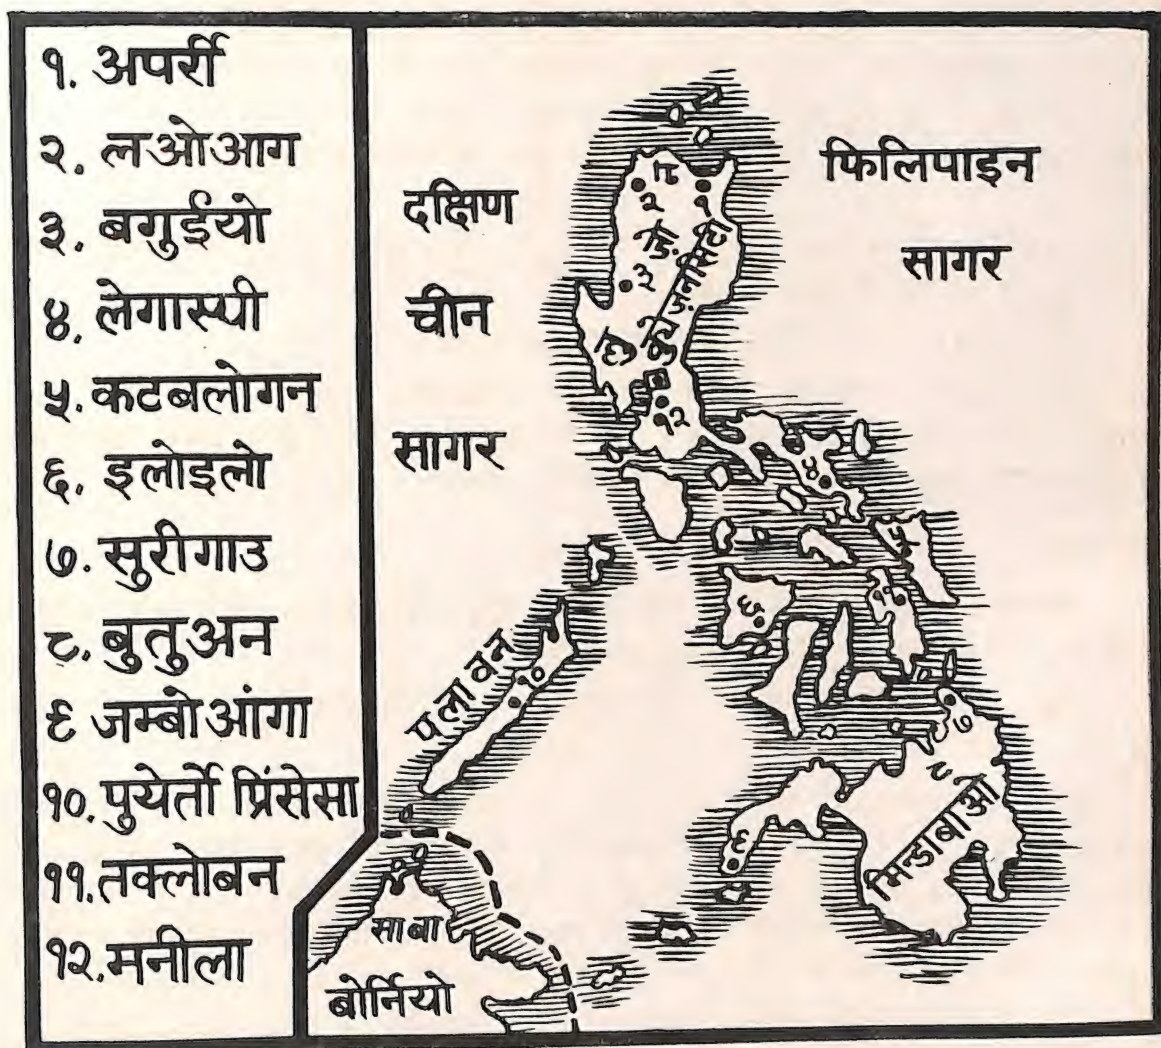 १. अपर्री
२. लओआग
३. बगुईयो
४. लेगास्पी
५. कटबलोगन
६. इलोइलो
७. सुरीगाउ
८. बुतुअन
९ जम्बोआंगा
१०. पुयेर्तो प्रिंसेसा
११. तक्लोबन
१२. मनीला
दक्षिण
चीन
सागर
फिलिपाइन
सागर
२
१
३
१२
४
५
६
११
पलावन
१०
७
८
मिन्डाबाओ
९
साबा
बोर्नियो